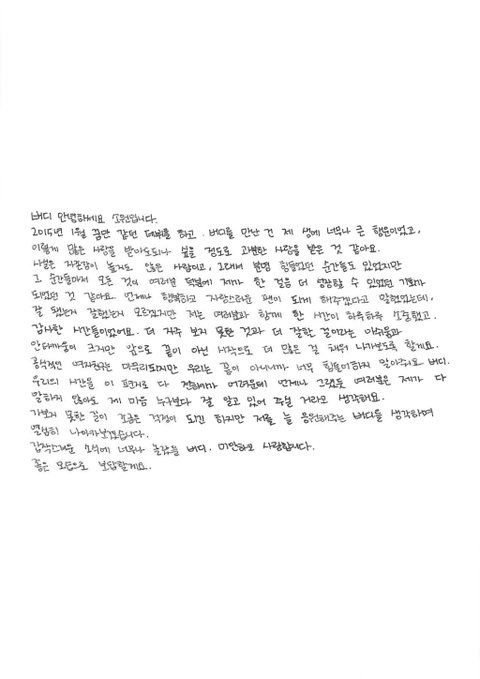 버디 안녕하세요 소원입니다.
2015년 1월 꿈만 같던 데뷔를 하고. 버디를 만난 건 제 생에 너무나 큰 행운이었고,
이렇게 많은 사랑을 받아도되나 싶을 정도로 과분한 사랑을 받은 것 같아요.
사실은 자존감이 높지도 않은 사람이고, 그래서 분명 힘들었던 순간들도 있었지만
그 순간들마저 모든 것이 여러분 덕분에 제가 한 걸음 더 성장할 수 있었던 기회가
되었던 것 같아요. 언제나 행복하고 자랑스러운 편이 되게 해주겠다고 말했었는데,
잘 됐는지 잘했는지 모르겠지만 저는 여러분과 함께 한 시간이 하루하루 소중했고.
감사한 시간들이었어요. 더 자주 보지 못한 것과 더 잘할 걸이라는 아쉬움과
안타까움이 크지만 앞으로 끝이 아닌 시작으로 더 많은 걸 채워 나가보도록 할게요.
공식적인 여자친구는 마무리되지만 우리는 끝이 아니니까 너무 힘들어하지 말아주어요 버디.
우리의 시간을 이 편지로 다 전하기가 어려운데 언제나 그랬듯 여러분은 제가 다
말하지 않아도 제 마음 누구보다 잘 알고 있어 주실 거라고 생각해요.
가보지 못한 길이 조금은 걱정이 되긴 하지만 저를 늘 응원해주는 버디를 생각하며
열심히 나아가보겠습니다.
갑작스러운 소식에 너무나 놀랐을 버디. 미안하고 사랑합니다.
좋은 모습으로 보답할게요.